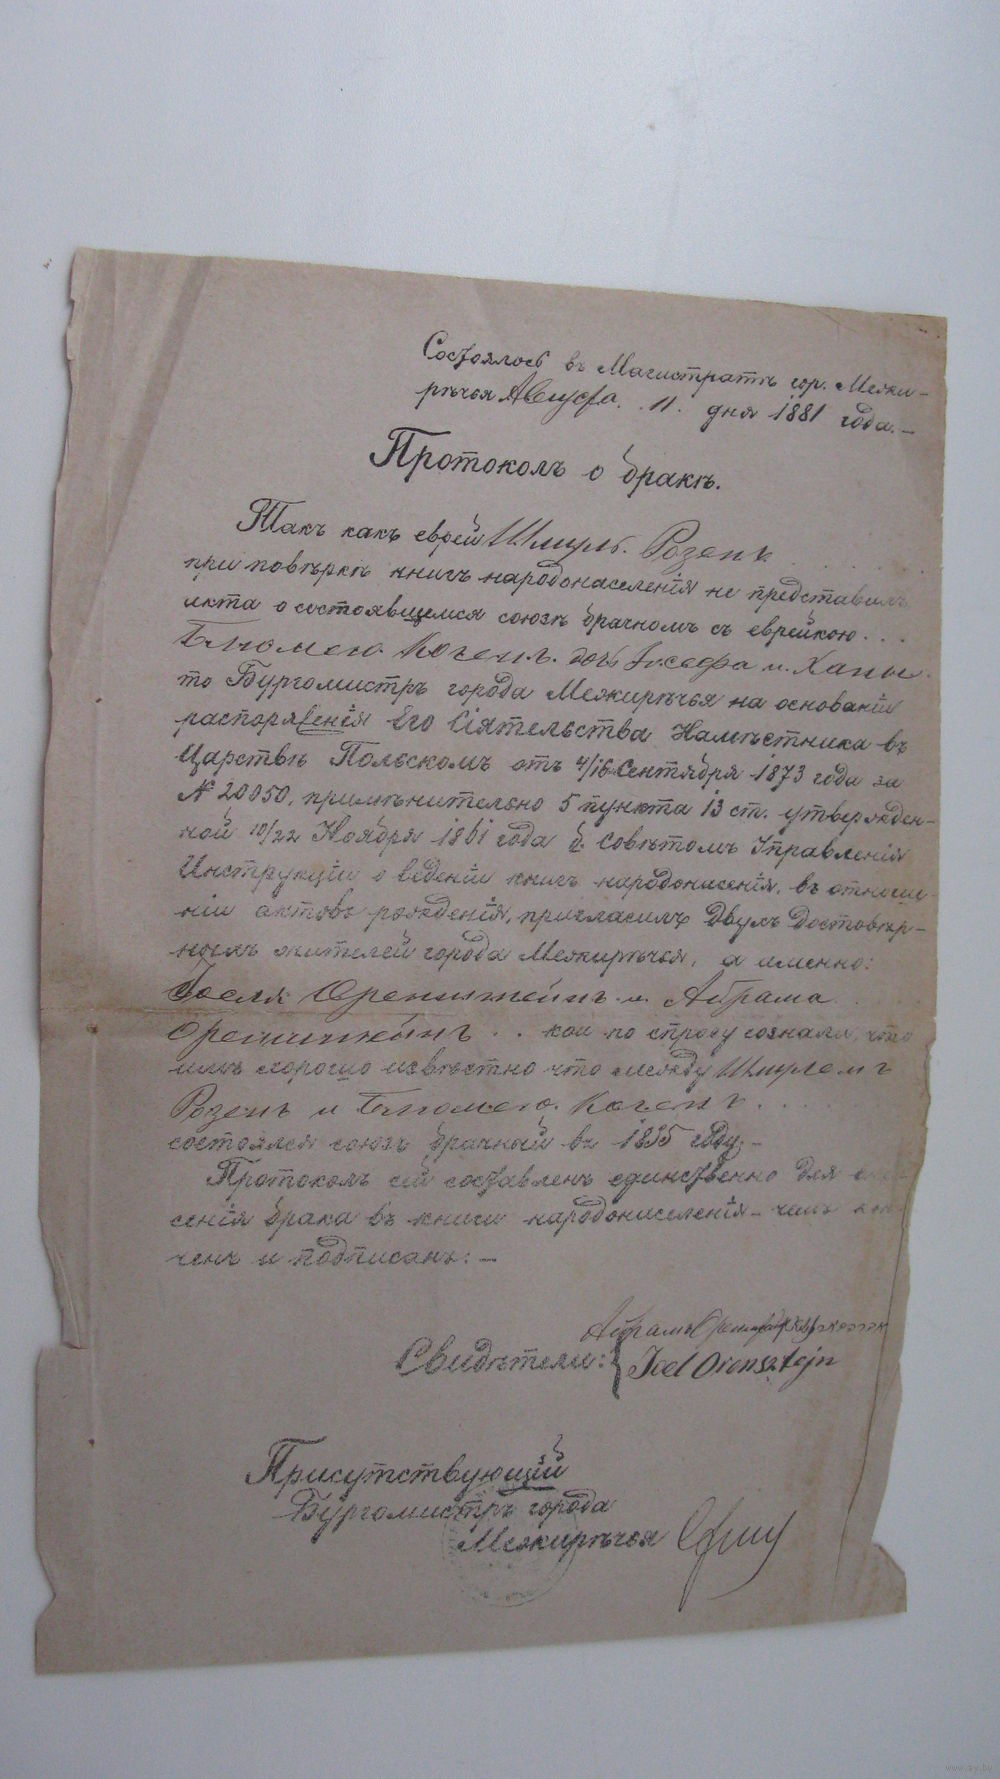 Состоялось въ Магистратѣ гор. Межи-
рѣчья Августа 11 дня 1881 года.
Протоколъ о бракѣ.
Такъ какъ еврей Шмуль Розенъ
при повѣркѣ книгъ народонаселенія не представилъ
акта о состоявшемся союзѣ брачномъ съ еврейкою
Блюмею Когенъ дочь Іосефа и Ханы
то Бургомистръ города Межирѣчья на основаніи
распоряженія Его Сіятельства Намѣстника въ
Царствѣ Польскомъ отъ 4/16 Сентября 1873 года за
№ 20050, примѣнительно 5 пункта 13 ст. утвержден-
ной 10/22 Ноября 1861 года Совѣтомъ Управленія
Инструкціи о веденіи книгъ народонасенія, въ отноше-
ніи актовъ рожденія, пригласилъ двухъ достовѣр-
ныхъ жителей города Межирѣчья, а именно:
Іоеля Оренштейнъ и Абрама
Оренштейнъ кои по спросу сознали, что
имъ хорошо извѣстно что между Шмулемъ
Розенъ и Блюмею Когенъ
состоялся союзъ брачный въ 1835 году.
Протоколъ сей составленъ единственно для
сенія брака въ книги народонаселенія чемъ кон-
ченъ и подписанъ: —
Абрамъ
Свидѣтели: Joel Orensztejn
Присутствующій
Бургомистръ города
Межирѣчья
www.ay.by